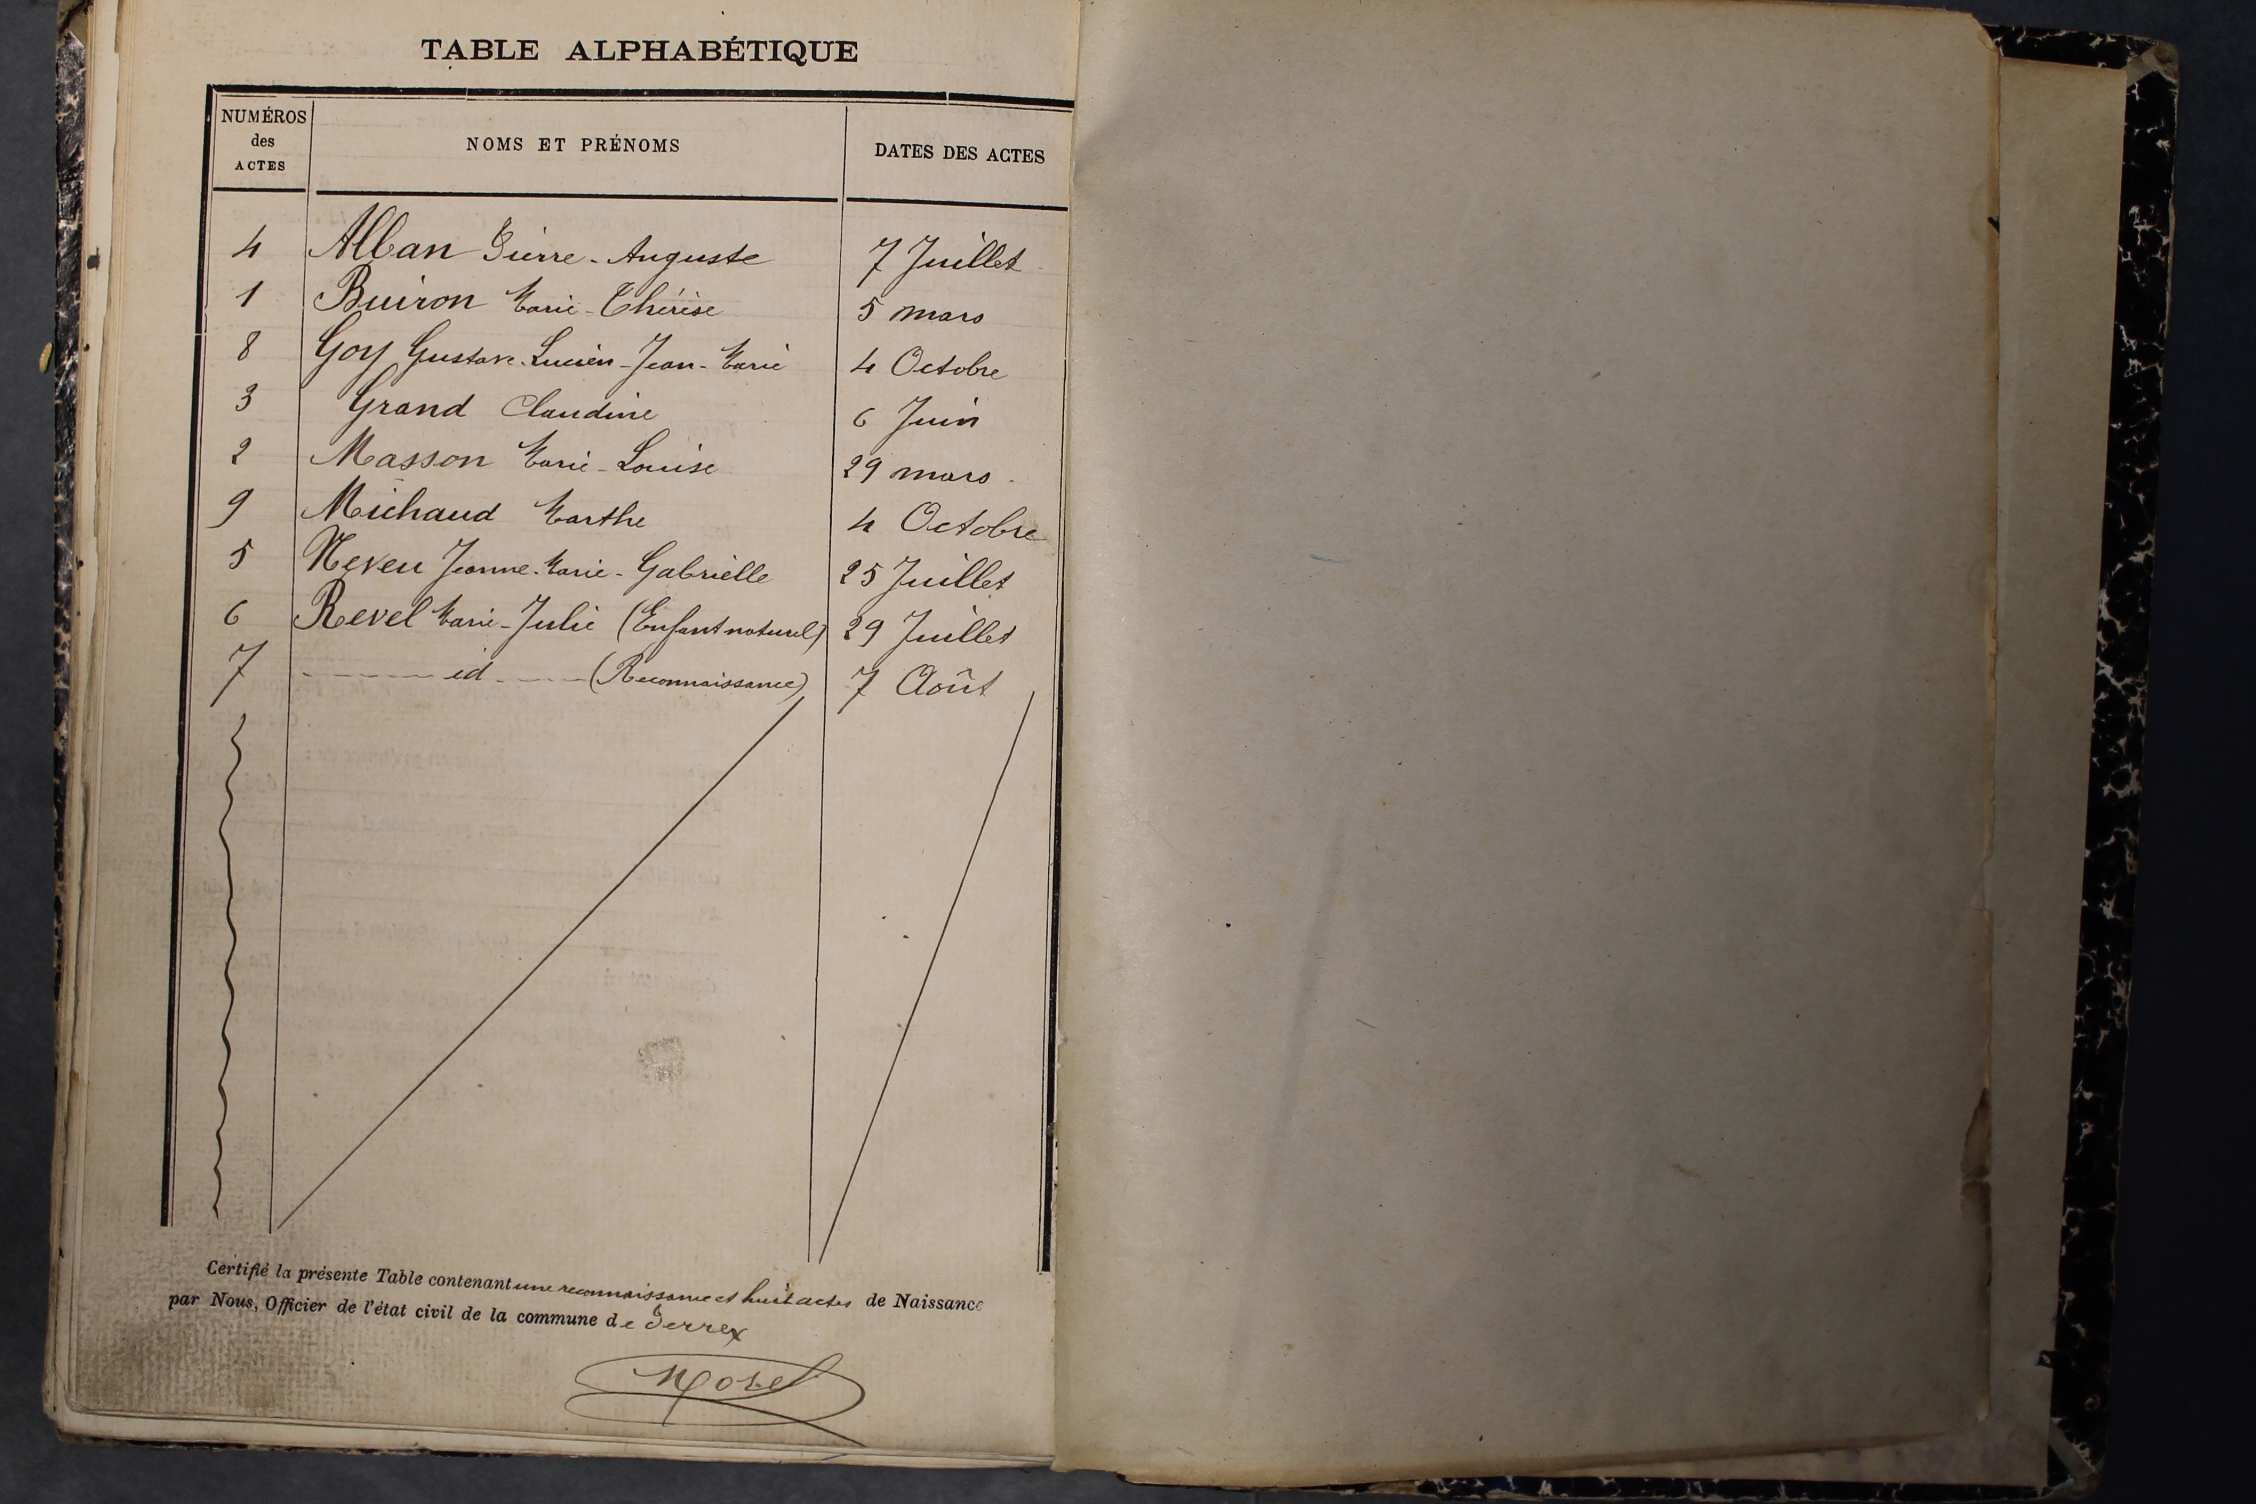 TABLE ALPHABÉTIQUE
NUMÉROS des ACTES NOMS ET PRÉNOMS DATES DES ACTES
4 Alban Pierre-Auguste 7 Juillet
1 Buiron Marie-Thérèse 5 mars
8 Goy Gustave-Lucien-Jean-Marie 4 Octobre
3 Grand Claudine 6 Juin
2 Masson Marie-Louise 29 mars
9 Michaud Marthe 4 Octobre
5 Neveu Jeanne-Marie-Gabrielle 25 Juillet
6 Revel Marie-Julie (Enfant naturel) 29 Juillet
7 id (Reconnaissance) 7 Août
Certifié la présente Table contenant une reconnaissance et huit actes de Naissance
par Nous, Officier de l'état civil de la commune de Perrex
Morel